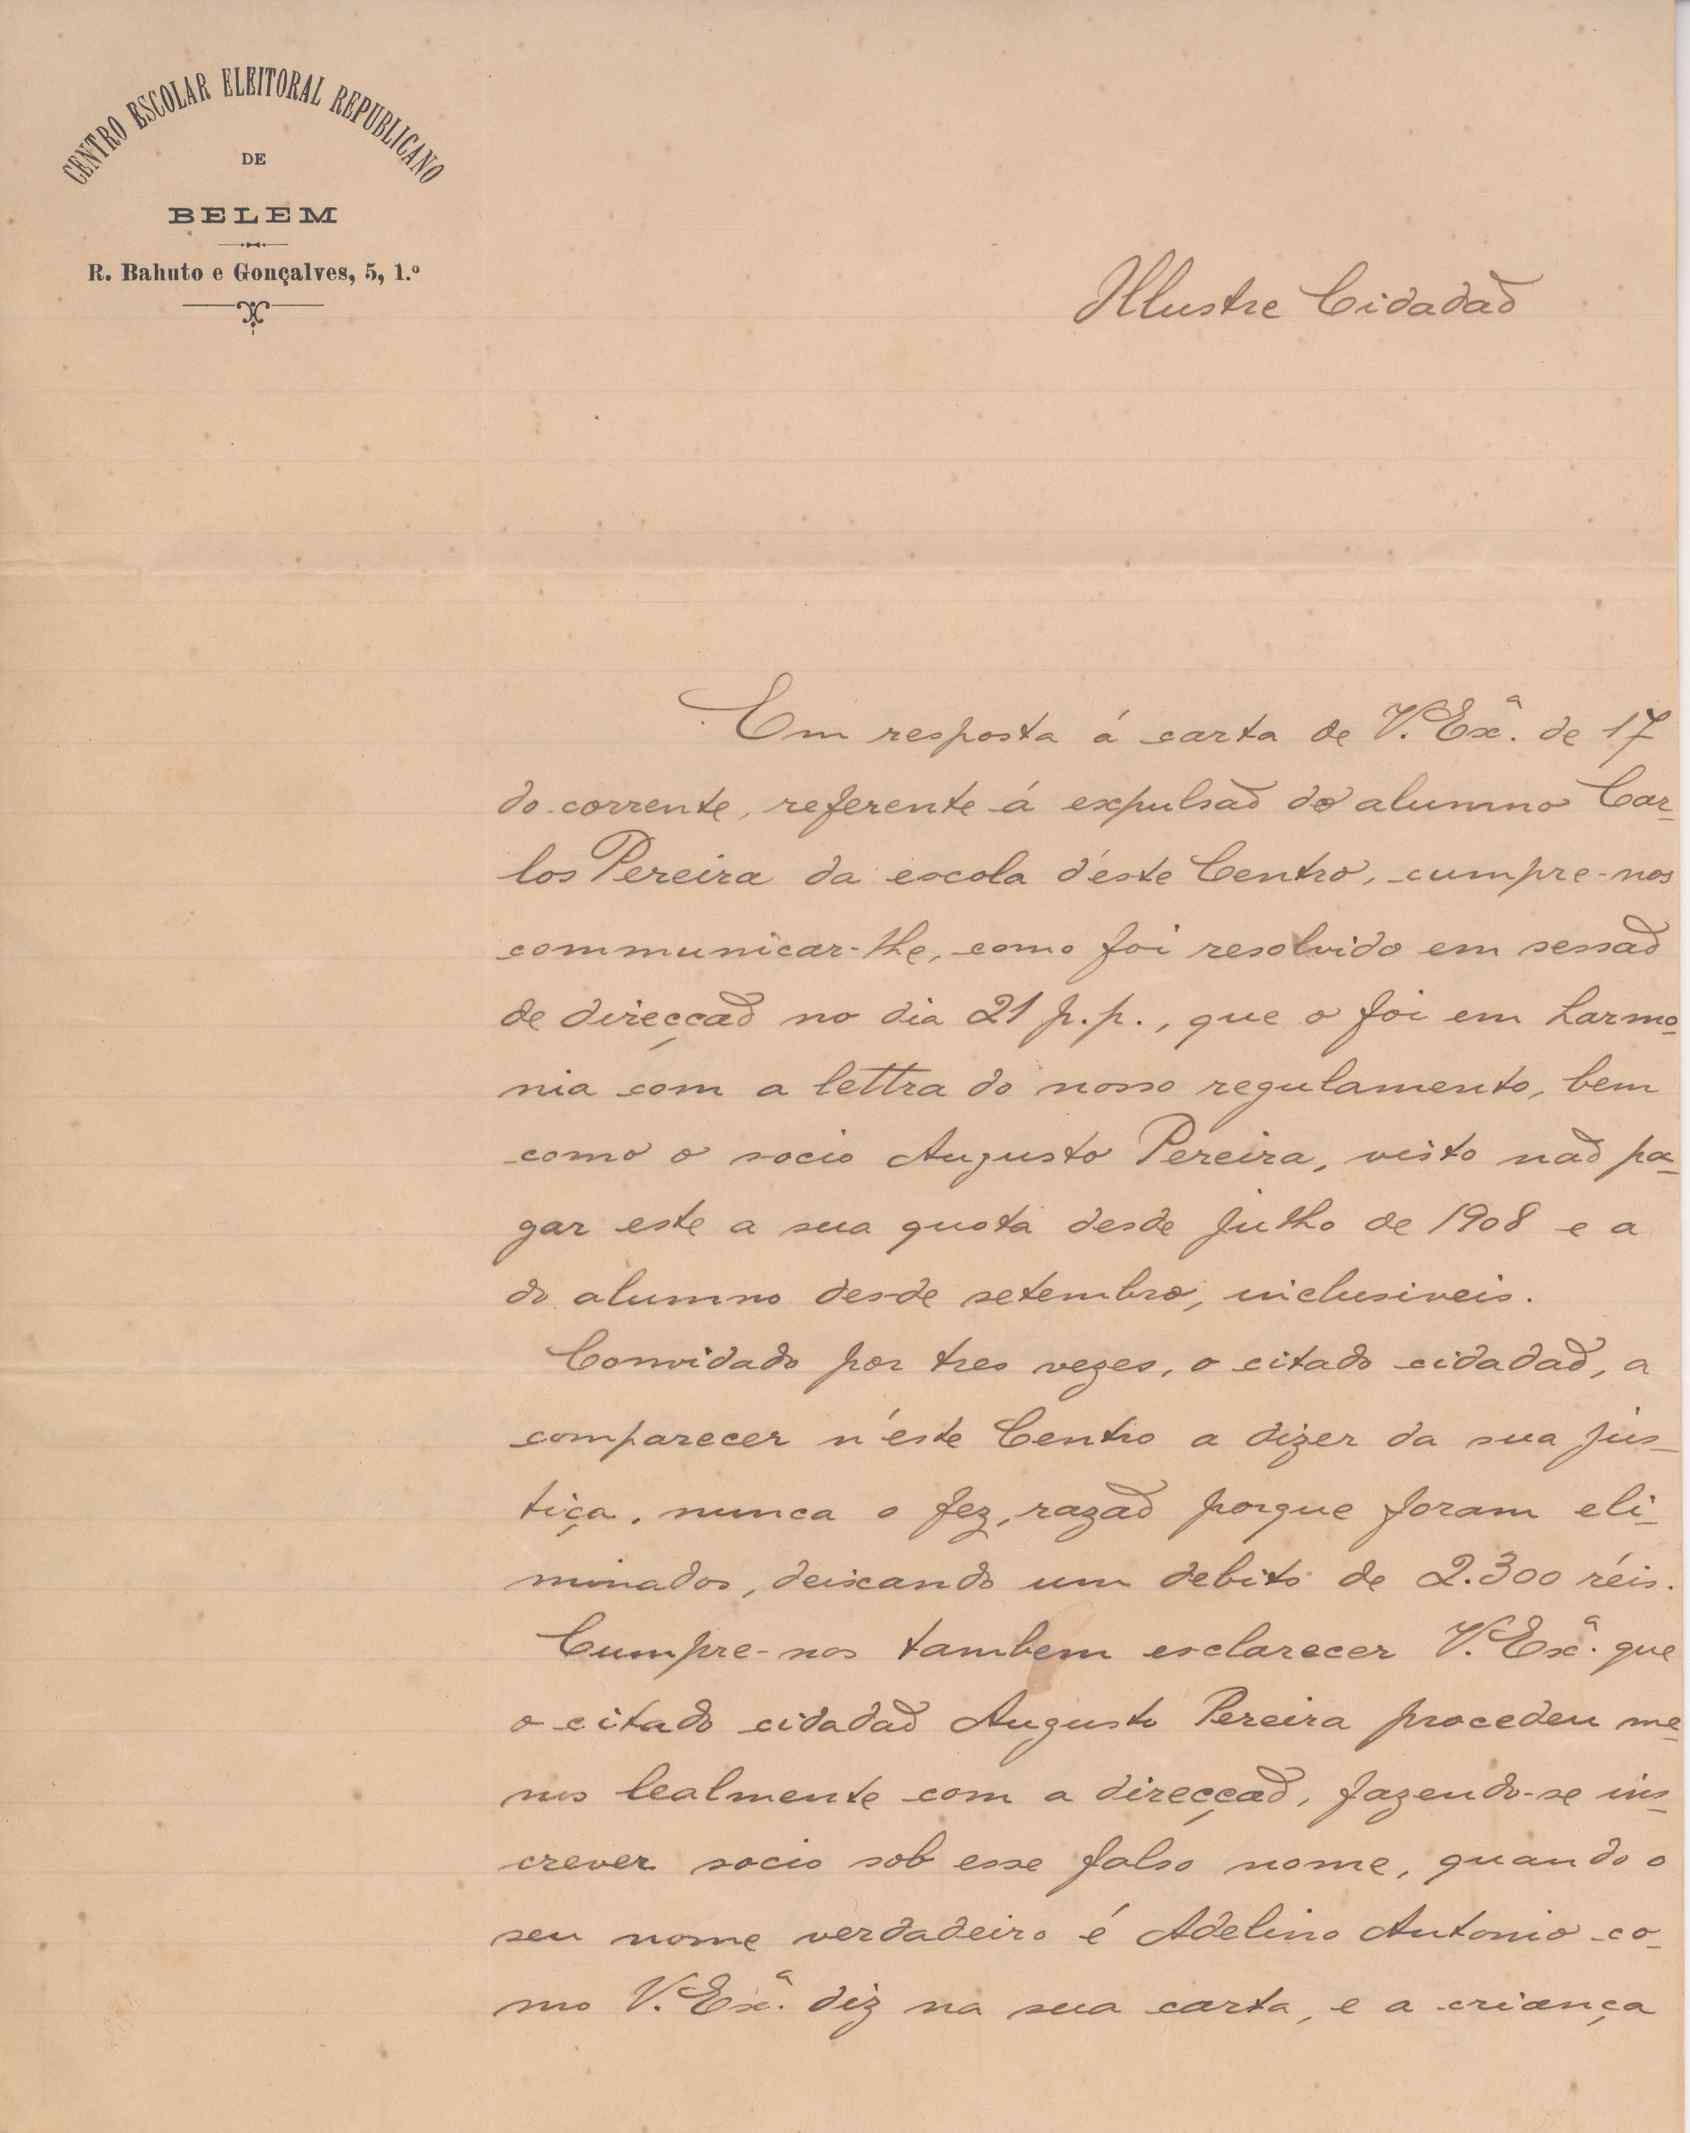 CENTRO ESCOLAR ELEITORAL REPUBLICANO
DE
BELEM
R. Bahuto e Gonçalves, 5, 1.º
Illustre Cidadaõ
Em resposta á carta de V. Exª. de 17
do corrente, referente á expulsaõ do alumno Car-
los Pereira da escola d'éste Centro, cumpre-nos
communicar-lhe, como foi resolvido em sessaõ
de direcçaõ no dia 21 p.p., que o foi em harmo-
nia com a lettra do nosso regulamento, bem
como o socio Augusto Pereira, visto naõ pa-
gar este a sua quota desde julho de 1908 e a
do alumno desde setembro, inclusiveis.
Convidado por tres vezes, o citado cidadaõ, a
comparecer n'éste Centro a dizer da sua jus-
tiça, nunca o fez, razaõ porque foram eli-
minados, deixando um debito de 2.300 réis.
Cumpre-nos tambem esclarecer V. Exª. que
o citado cidadaõ Augusto Pereira procedeu me-
nos lealmente com a direcçaõ, fazendo-se ins-
crever socio sob esse falso nome, quando o
seu nome verdadeiro é Adelino Antonio co-
mo V. Exª. diz na sua carta, e a criança